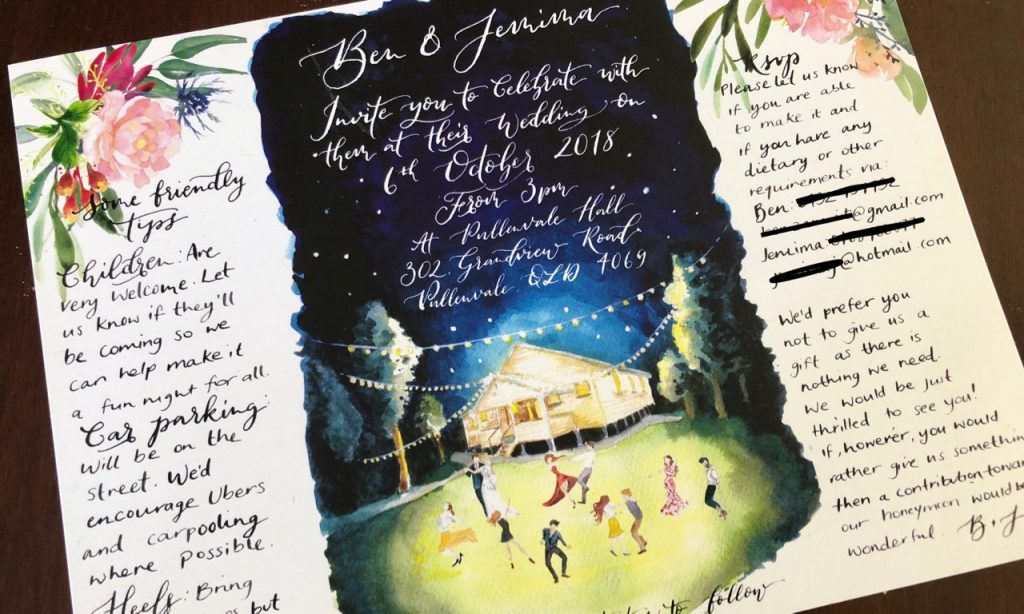 Ben & Jemima
Invite you to Celebrate with
them at their Wedding on
6th October 2018
From 3pm
At Pullenvale Hall
302 Grandview Road
Pullenvale QLD 4069
to follow
Some friendly
tips
Children: Are
very welcome. Let
us know if they'll
be coming so we
can help make it
a fun night for all.
Car parking:
Will be on the
street. We'd
encourage Ubers
and carpooling
where possible.
Heels: Bring
but
RSVP
Please let us know
if you are able
to make it and
if you have any
dietary or other
requirements via:
Ben:
@gmail.com
Jemima:
@hotmail.com
We'd prefer you
not to give us a
gift as there is
nothing we need.
We would be just
thrilled to see you!
If, however, you would
rather give us something
then a contribution toward
our honeymoon would be
wonderful. B + J